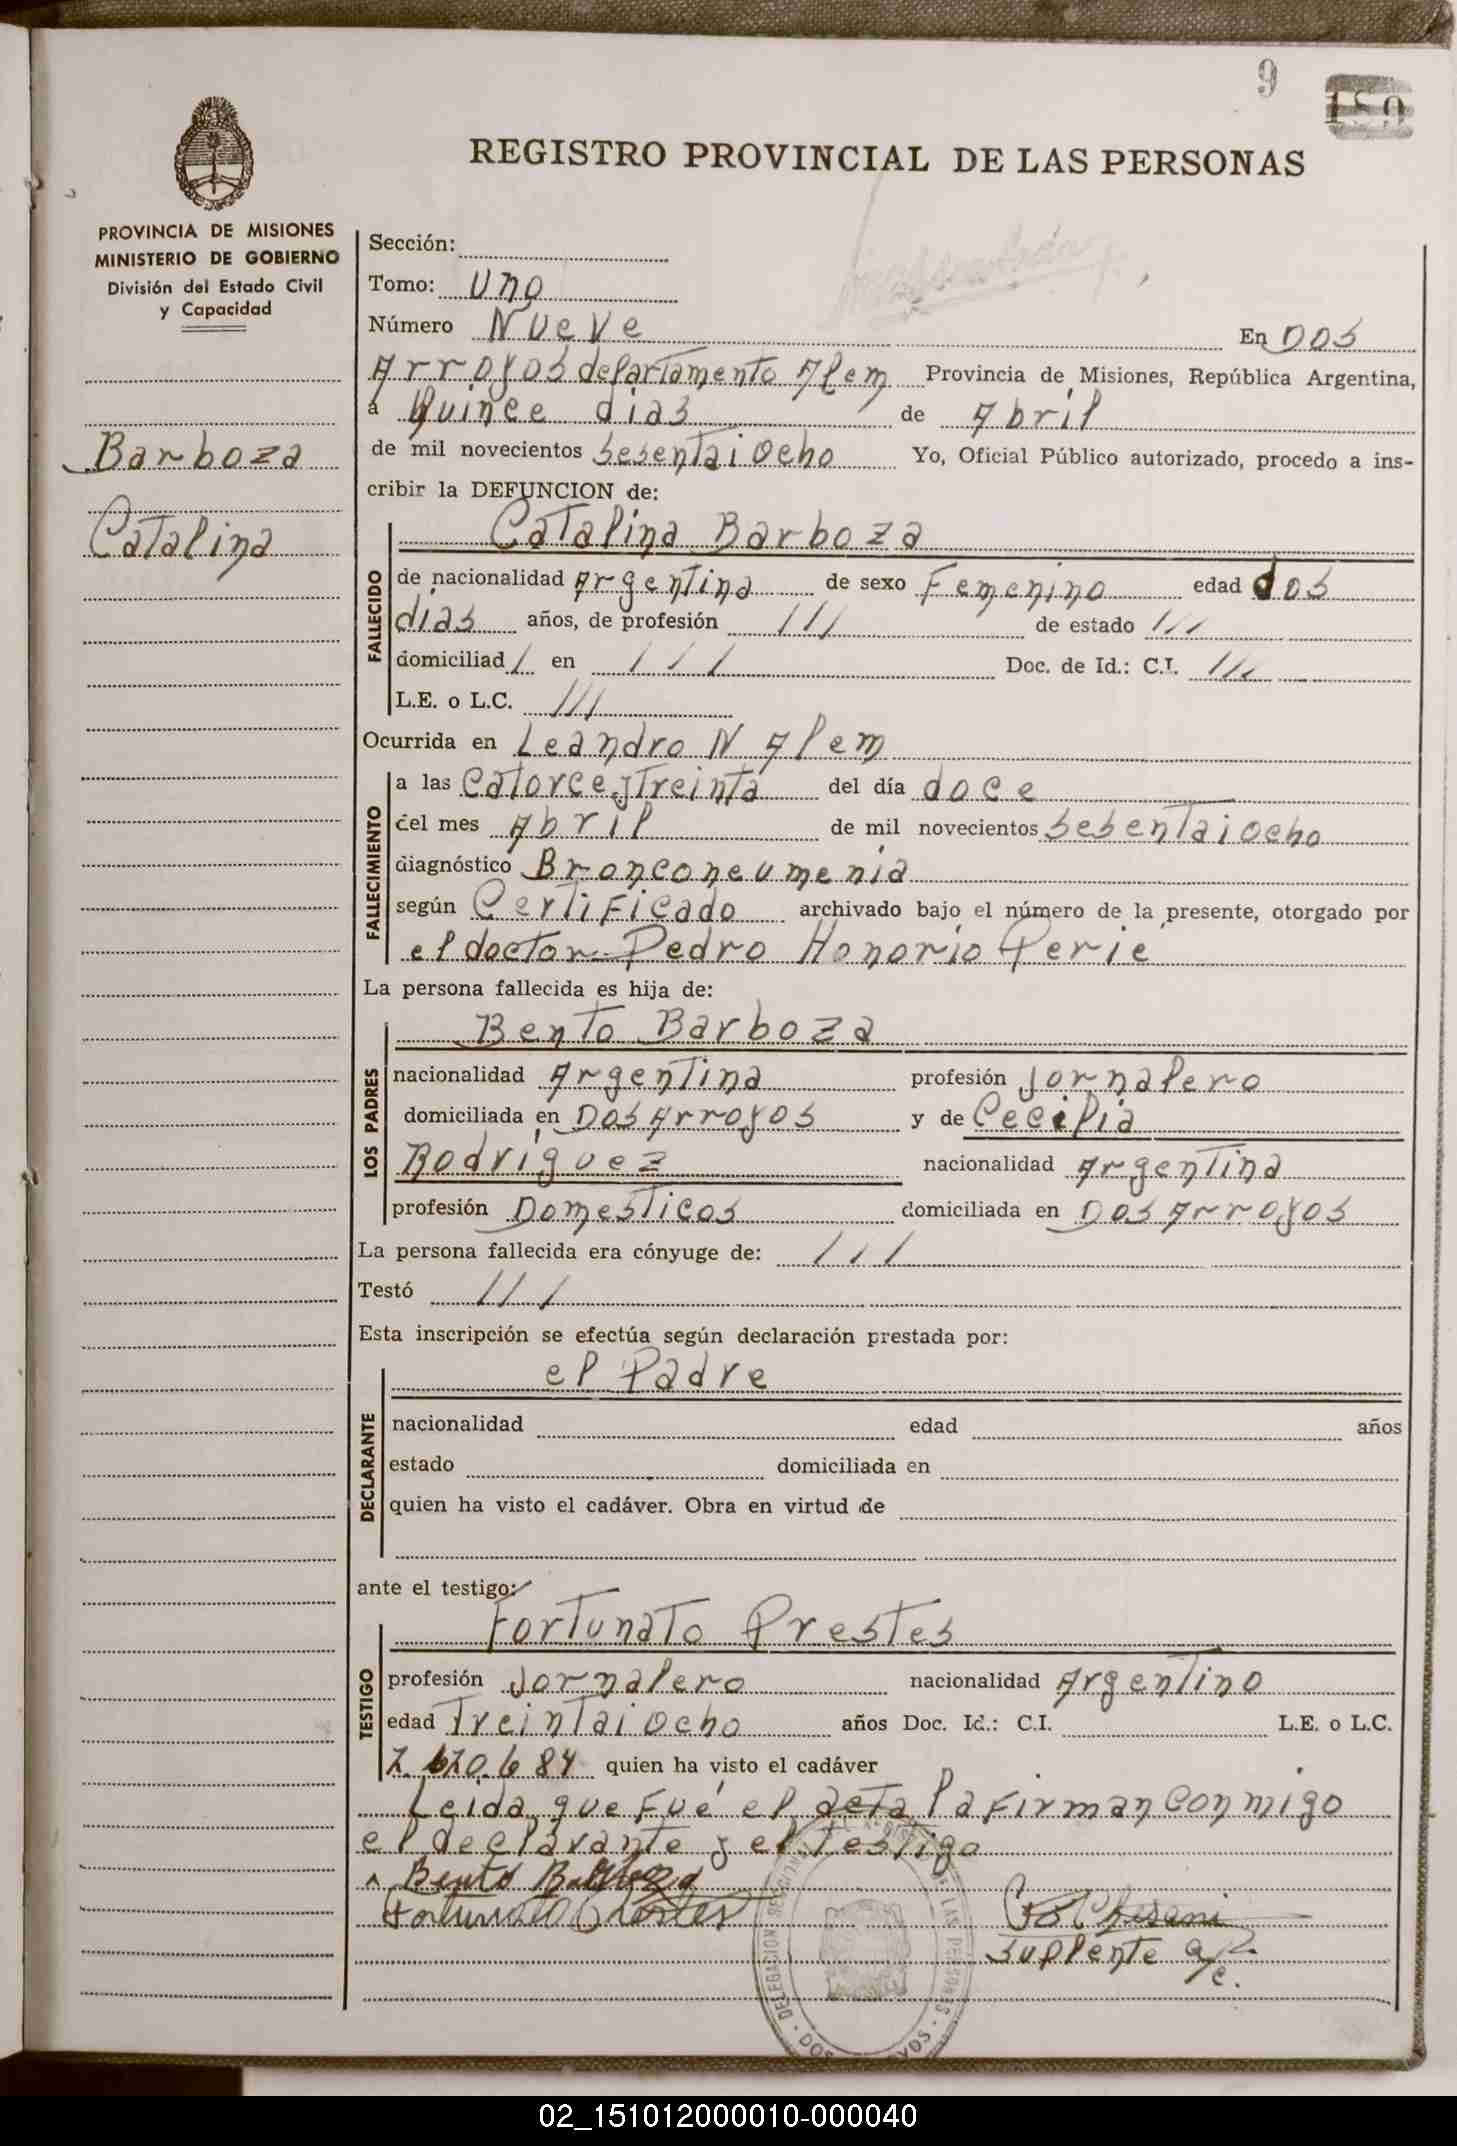 9
REGISTRO PROVINCIAL DE LAS PERSONAS
PROVINCIA DE MISIONES
MINISTERIO DE GOBIERNO
División del Estado Civil
y Capacidad
Barboza
Catalina
Sección:
Tomo: Uno
Número Nueve En Dos
Arroyos departamento Alem Provincia de Misiones, República Argentina,
a Quince dias de Abril
de mil novecientos Sesentaiocho Yo, Oficial Público autorizado, procedo a ins-
cribir la DEFUNCION de:
Catalina Barboza
FALLECIDO
de nacionalidad Argentina de sexo Femenino edad dos
dias años, de profesión /// de estado ///
domiciliad/ en /// Doc. de Id.: C.I. ///
L.E. o L.C. ///
Ocurrida en Leandro N Alem
FALLECIMIENTO
a las Catorce y Treinta del día doce
del mes Abril de mil novecientos Sesentaiocho
diagnóstico Bronconeumenia
según Certificado archivado bajo el número de la presente, otorgado por
el doctor Pedro Honorio Perie
La persona fallecida es hija de:
Bento Barboza
LOS PADRES
nacionalidad Argentina profesión Jornalero
domiciliada en Dos Arroyos y de Cecilia
Rodriguez nacionalidad Argentina
profesión Domesticos domiciliada en Dos Arroyos
La persona fallecida era cónyuge de: ///
Testó ///
Esta inscripción se efectúa según declaración prestada por:
el Padre
DECLARANTE
nacionalidad edad años
estado domiciliada en
quien ha visto el cadáver. Obra en virtud de
ante el testigo:
Fortunato Prestes
TESTIGO
profesión Jornalero nacionalidad Argentino
edad Treintaiocho años Doc. Id.: C.I. L.E. o L.C.
7.620.684 quien ha visto el cadáver
Leida que Fué el acta la Firman Conmigo
el declarante y el testigo
Bento Barboza
Fortunato Prestes
Suplente a/c.
02_151012000010-000040